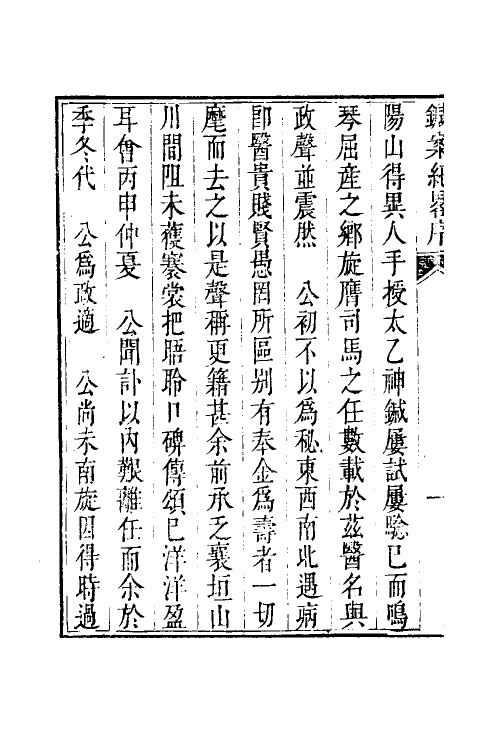 鍼案紀畧序
陽山得異人手授太乙神鍼屢試屢驗已而鳴
琴屈産之鄉旋膺司馬之任數載於茲醫名與
政聲並震然　公初不以爲秘東西南北遇病
卽醫貴賤賢愚罔所區别有奉金爲壽者一切
麾而去之以是聲稱更籍甚余前承乏襄垣山
川間阻未獲褰裳把晤聆口碑傳頌已洋洋盈
耳會丙申仲夏　公聞訃以內艱離任而余於
季冬代　公爲政適　公尚未南旋因得時過